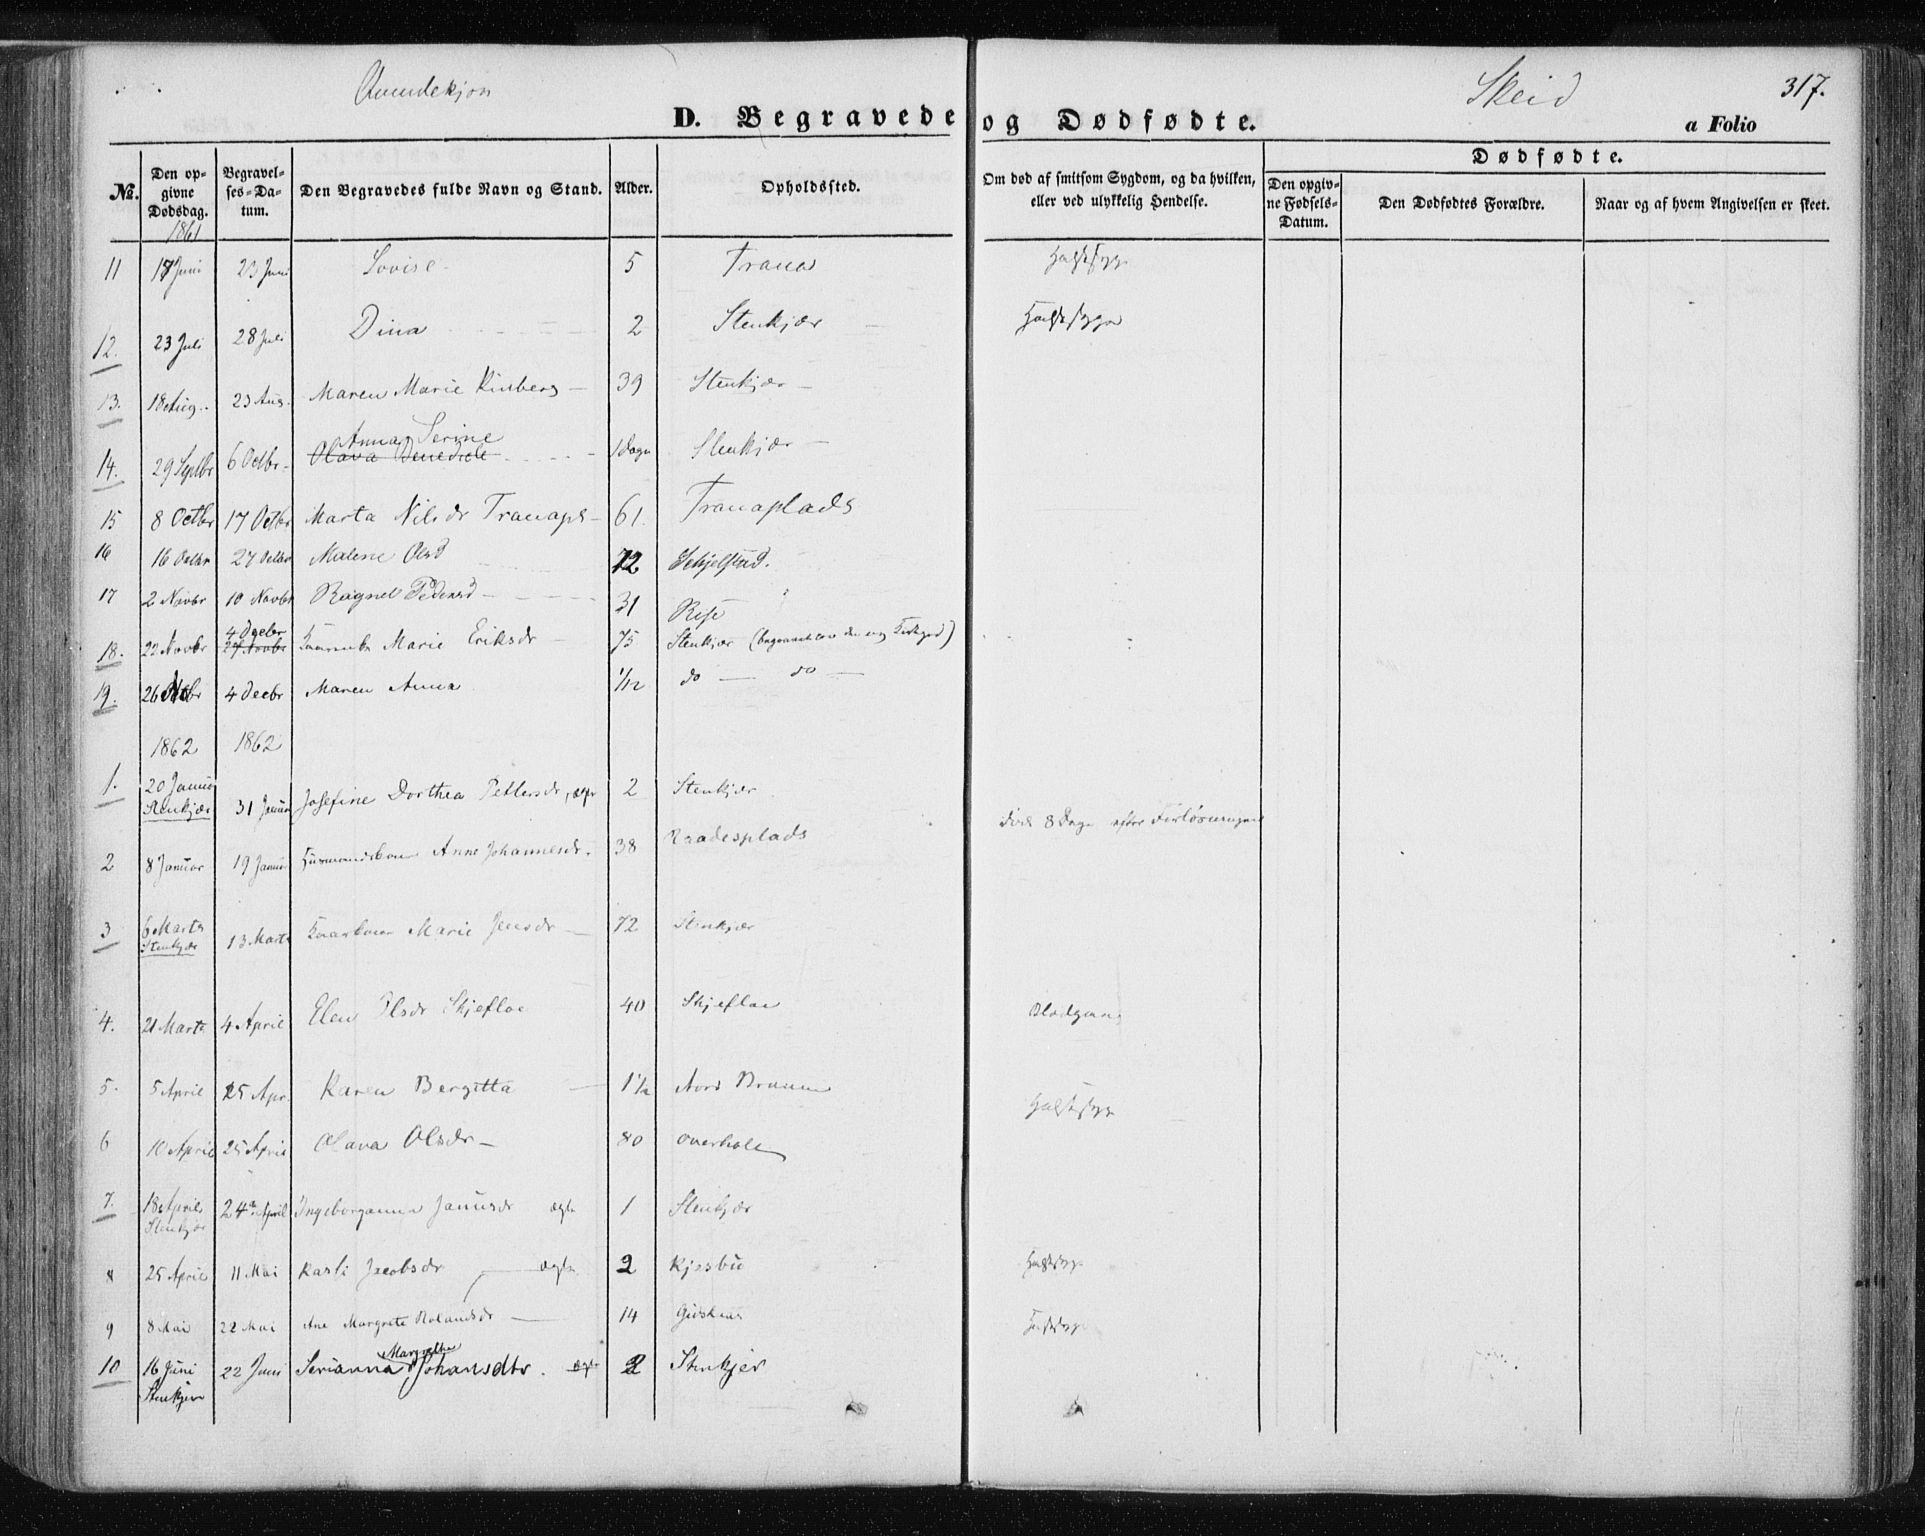 Qvindekjøn
Skeid
317.
D. Begravede og Dødfødte.
a Folio
No. Den opgivne Dødsdag. Begravelses-Datum. Den Begravedes fulde Navn og Stand. Alder. Opholdssted. Om død af smitsom Sygdom, og da hvilken, eller ved ulykkelig Hendelse. Dødfødte. Den opgivne Fødsels-Datum. Den Dødfødtes Forældre. Naar og af hvem Angivelsen er skeet.
1861
11 17 Juni 23 Juni Lovise 5 Trana Halssyge
12. 23 Juli 28 Juli Dina 2 Stenkjær Halssyge
13. 18 Aug. 23 Aug. Maren Marie 39 Stenkjær
Anna Serine
14. 29 Septbr 6 Octbr Olava Benedicte 1 Dage Stenkjær
15 8 Octbr 17 Octbr Marta Nilsdr Tranapl 61. Tranaplads
16 16 Octbr 27 Octbr Malene Olsd 72
17 2 Novbr 10 Novbr Ragnel Pedersd 31
4 Decbr
18. 22 Novbr 27 Novbr Marie Eriksdr 75 Stenkjær
19. 26 4 Decbr Maren Anna 1/12 do do
1862 1862
1. 20 Januar 31 Januar Josefine Dorthea Pettersdr, ægte 2 Stenkjær
Stenkjær
2 8 Januar 19 Januar Huusmandskone Anne Johannesdr. 38 død 8 Dage efter Forløsningen
3 6 Marts 13 Marts Marie Jensdr 72 Stenkjær
Stenkjær
4. 21 Marts 4 April Elen Olsdr Skjefloe 40 Skjefloe Blodgang
5. 5 April 25 Apr. Karen Bergitta 1 1/2 Nord Halssyge
6 10 April 25 April Olava Olsdr 80
7. 18 April 24 April Ingeborganna ægte 1 Stenkjær
Stenkjær
8 25 April 11 Mai Karli Jacobsdr ægte 2 Kjesbu Halssyge
9 8 Mai 22 Mai Ane Margrete Rolandsdr 14 Halssyge
Margrethe
10 16 Juni 22 Juni Serianna Johansdtr. ægt 2 Stenkjer
Stenkjer